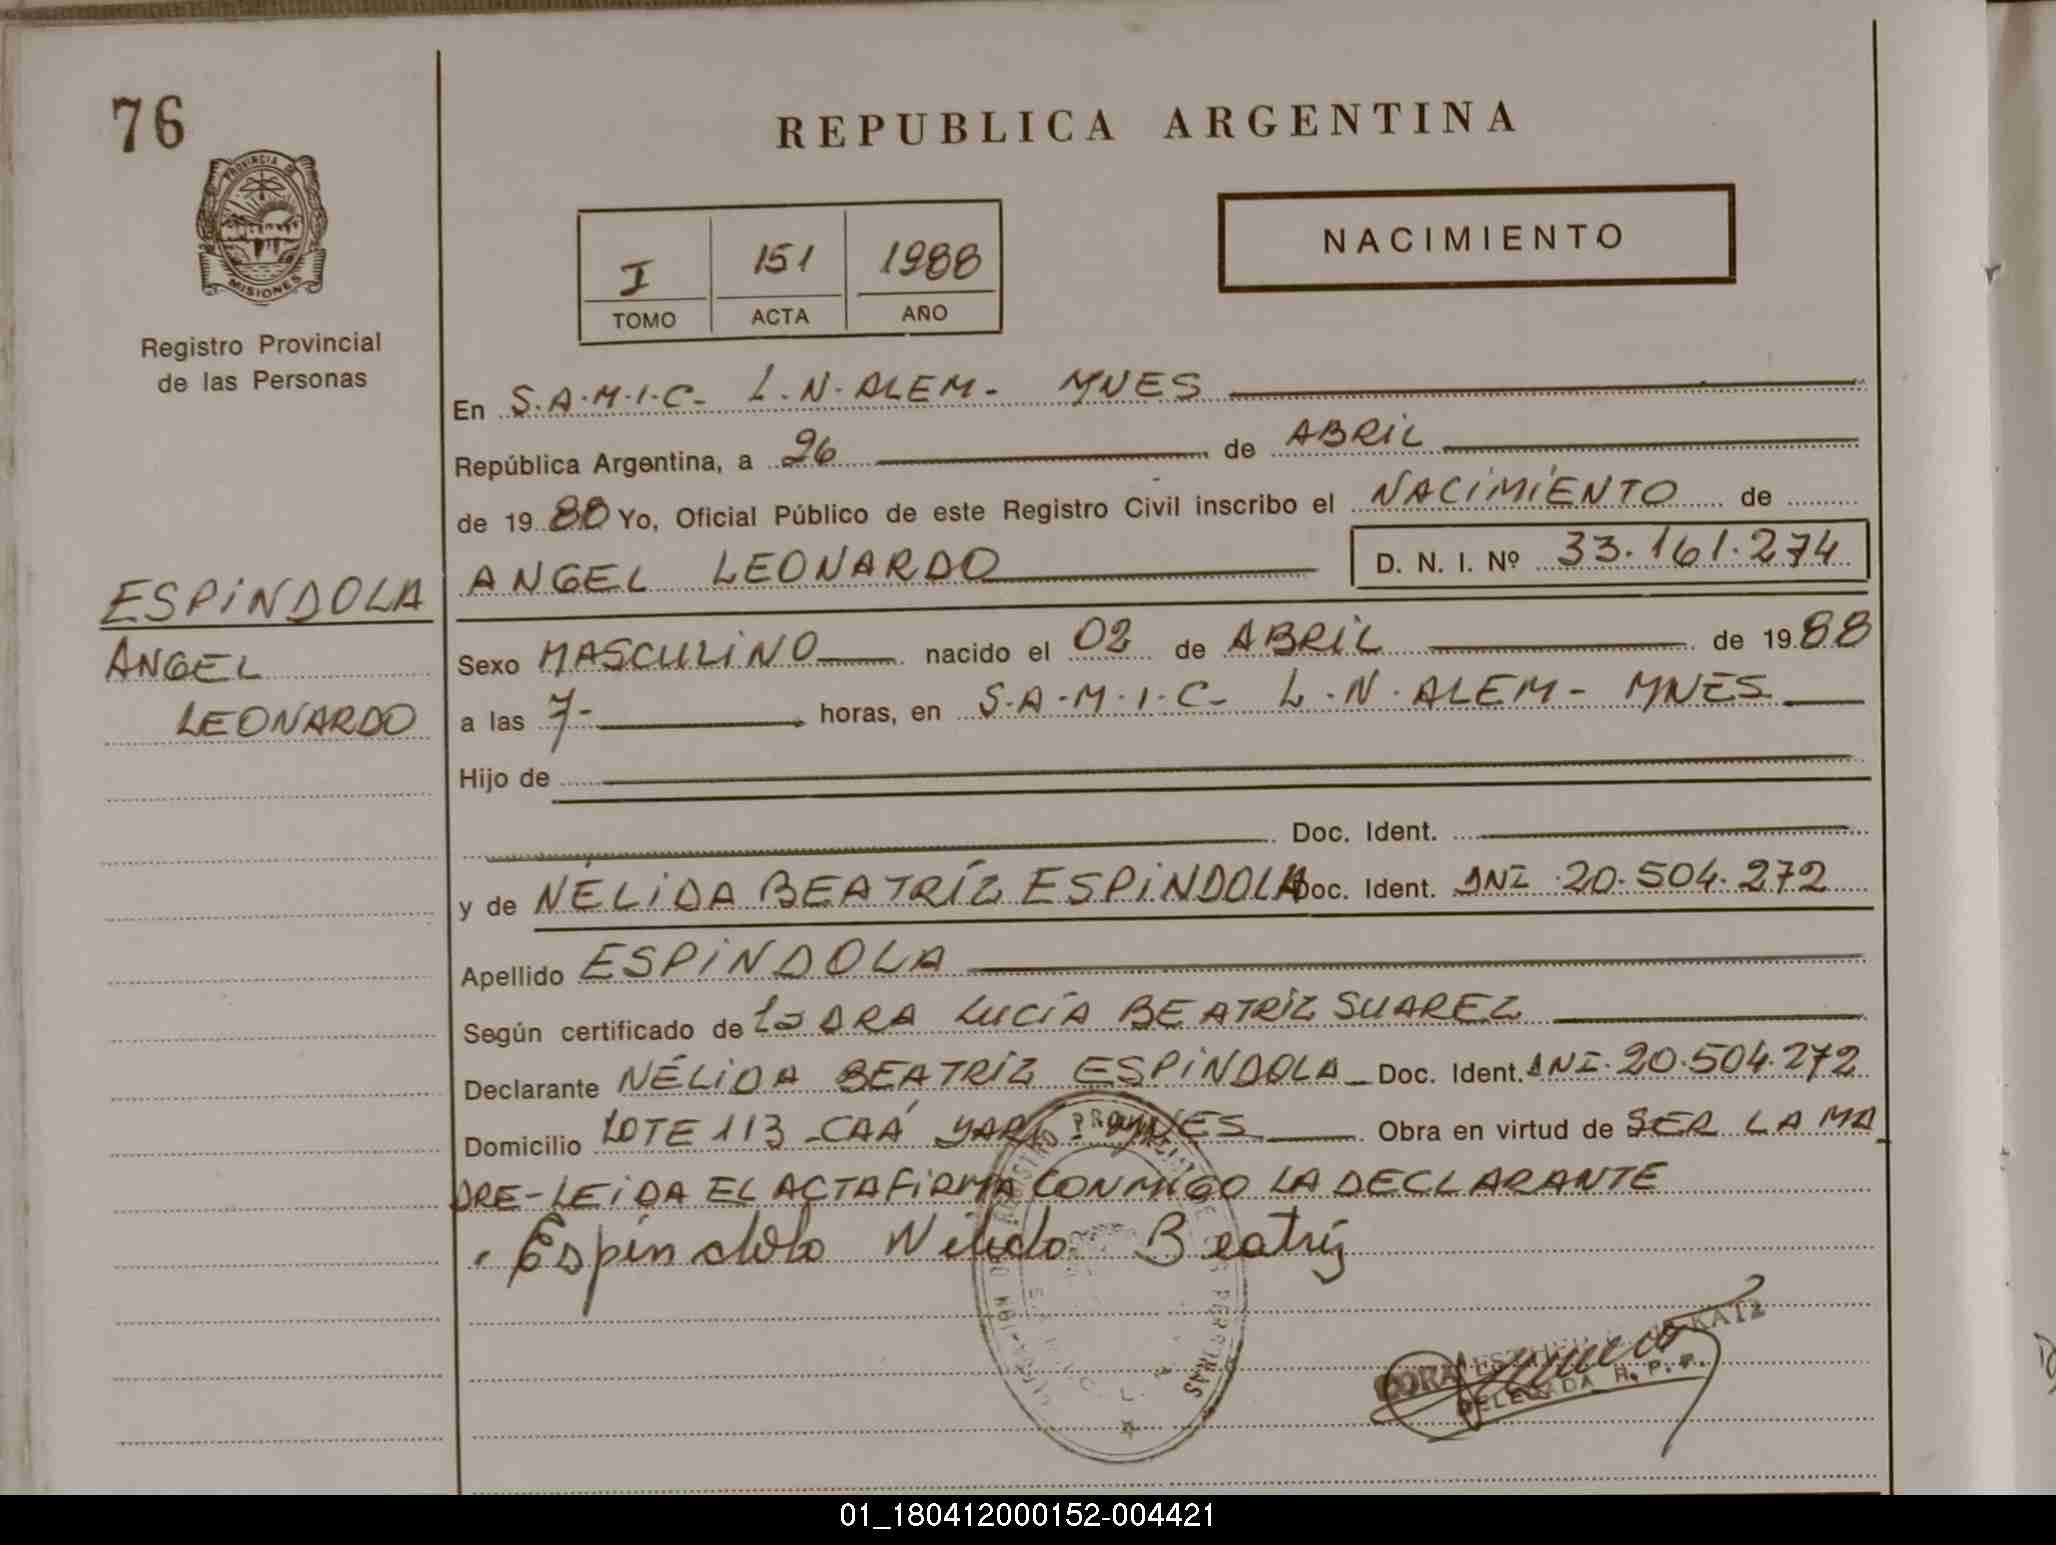 76
PROVINCIA DE
MISIONES
Registro Provincial
de las Personas
ESPINDOLA
ANGEL
LEONARDO
REPUBLICA ARGENTINA
I 151 1988
TOMO ACTA AÑO
NACIMIENTO
En S.A.M.I.C- L.N.ALEM- MNES
República Argentina, a 26 de ABRIL
de 1988 Yo, Oficial Público de este Registro Civil inscribo el NACIMIENTO de
ANGEL LEONARDO D. N. I. Nº 33.161.274
Sexo MASCULINO nacido el 02 de ABRIL de 1988
a las 7- horas, en S.A.M.I.C- L.N.ALEM- MNES
Hijo de
Doc. Ident.
y de NÉLIDA BEATRÍZ ESPINDOLA Doc. Ident. DNI 20.504.272
Apellido ESPINDOLA
Según certificado de la DRA LUCÍA BEATRÍZ SUAREZ
Declarante NÉLIDA BEATRÍZ ESPINDOLA Doc. Ident. DNI. 20.504.272
Domicilio LOTE 113 - CAÁ YARI - MNES Obra en virtud de SER LA MA
DRE- LEIDA EL ACTA FIRMA CONMIGO LA DECLARANTE
Espindola Nélida Beatriz
DORA KATZ
DELEGADA R. P. P.
01_180412000152-004421